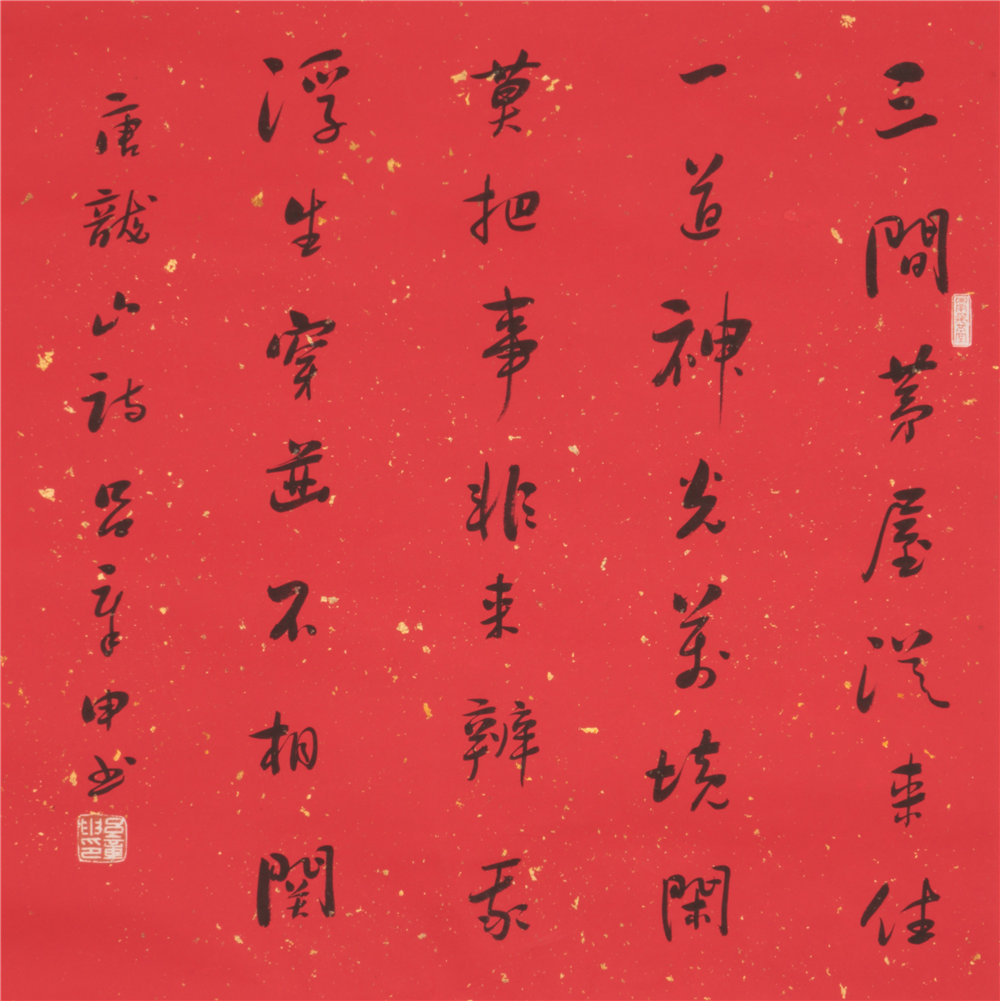 三間茅屋從来住
一道神光萬境閑
莫把事非来辨我
浮生穿鑿不相関
唐龍山詩呂章申书